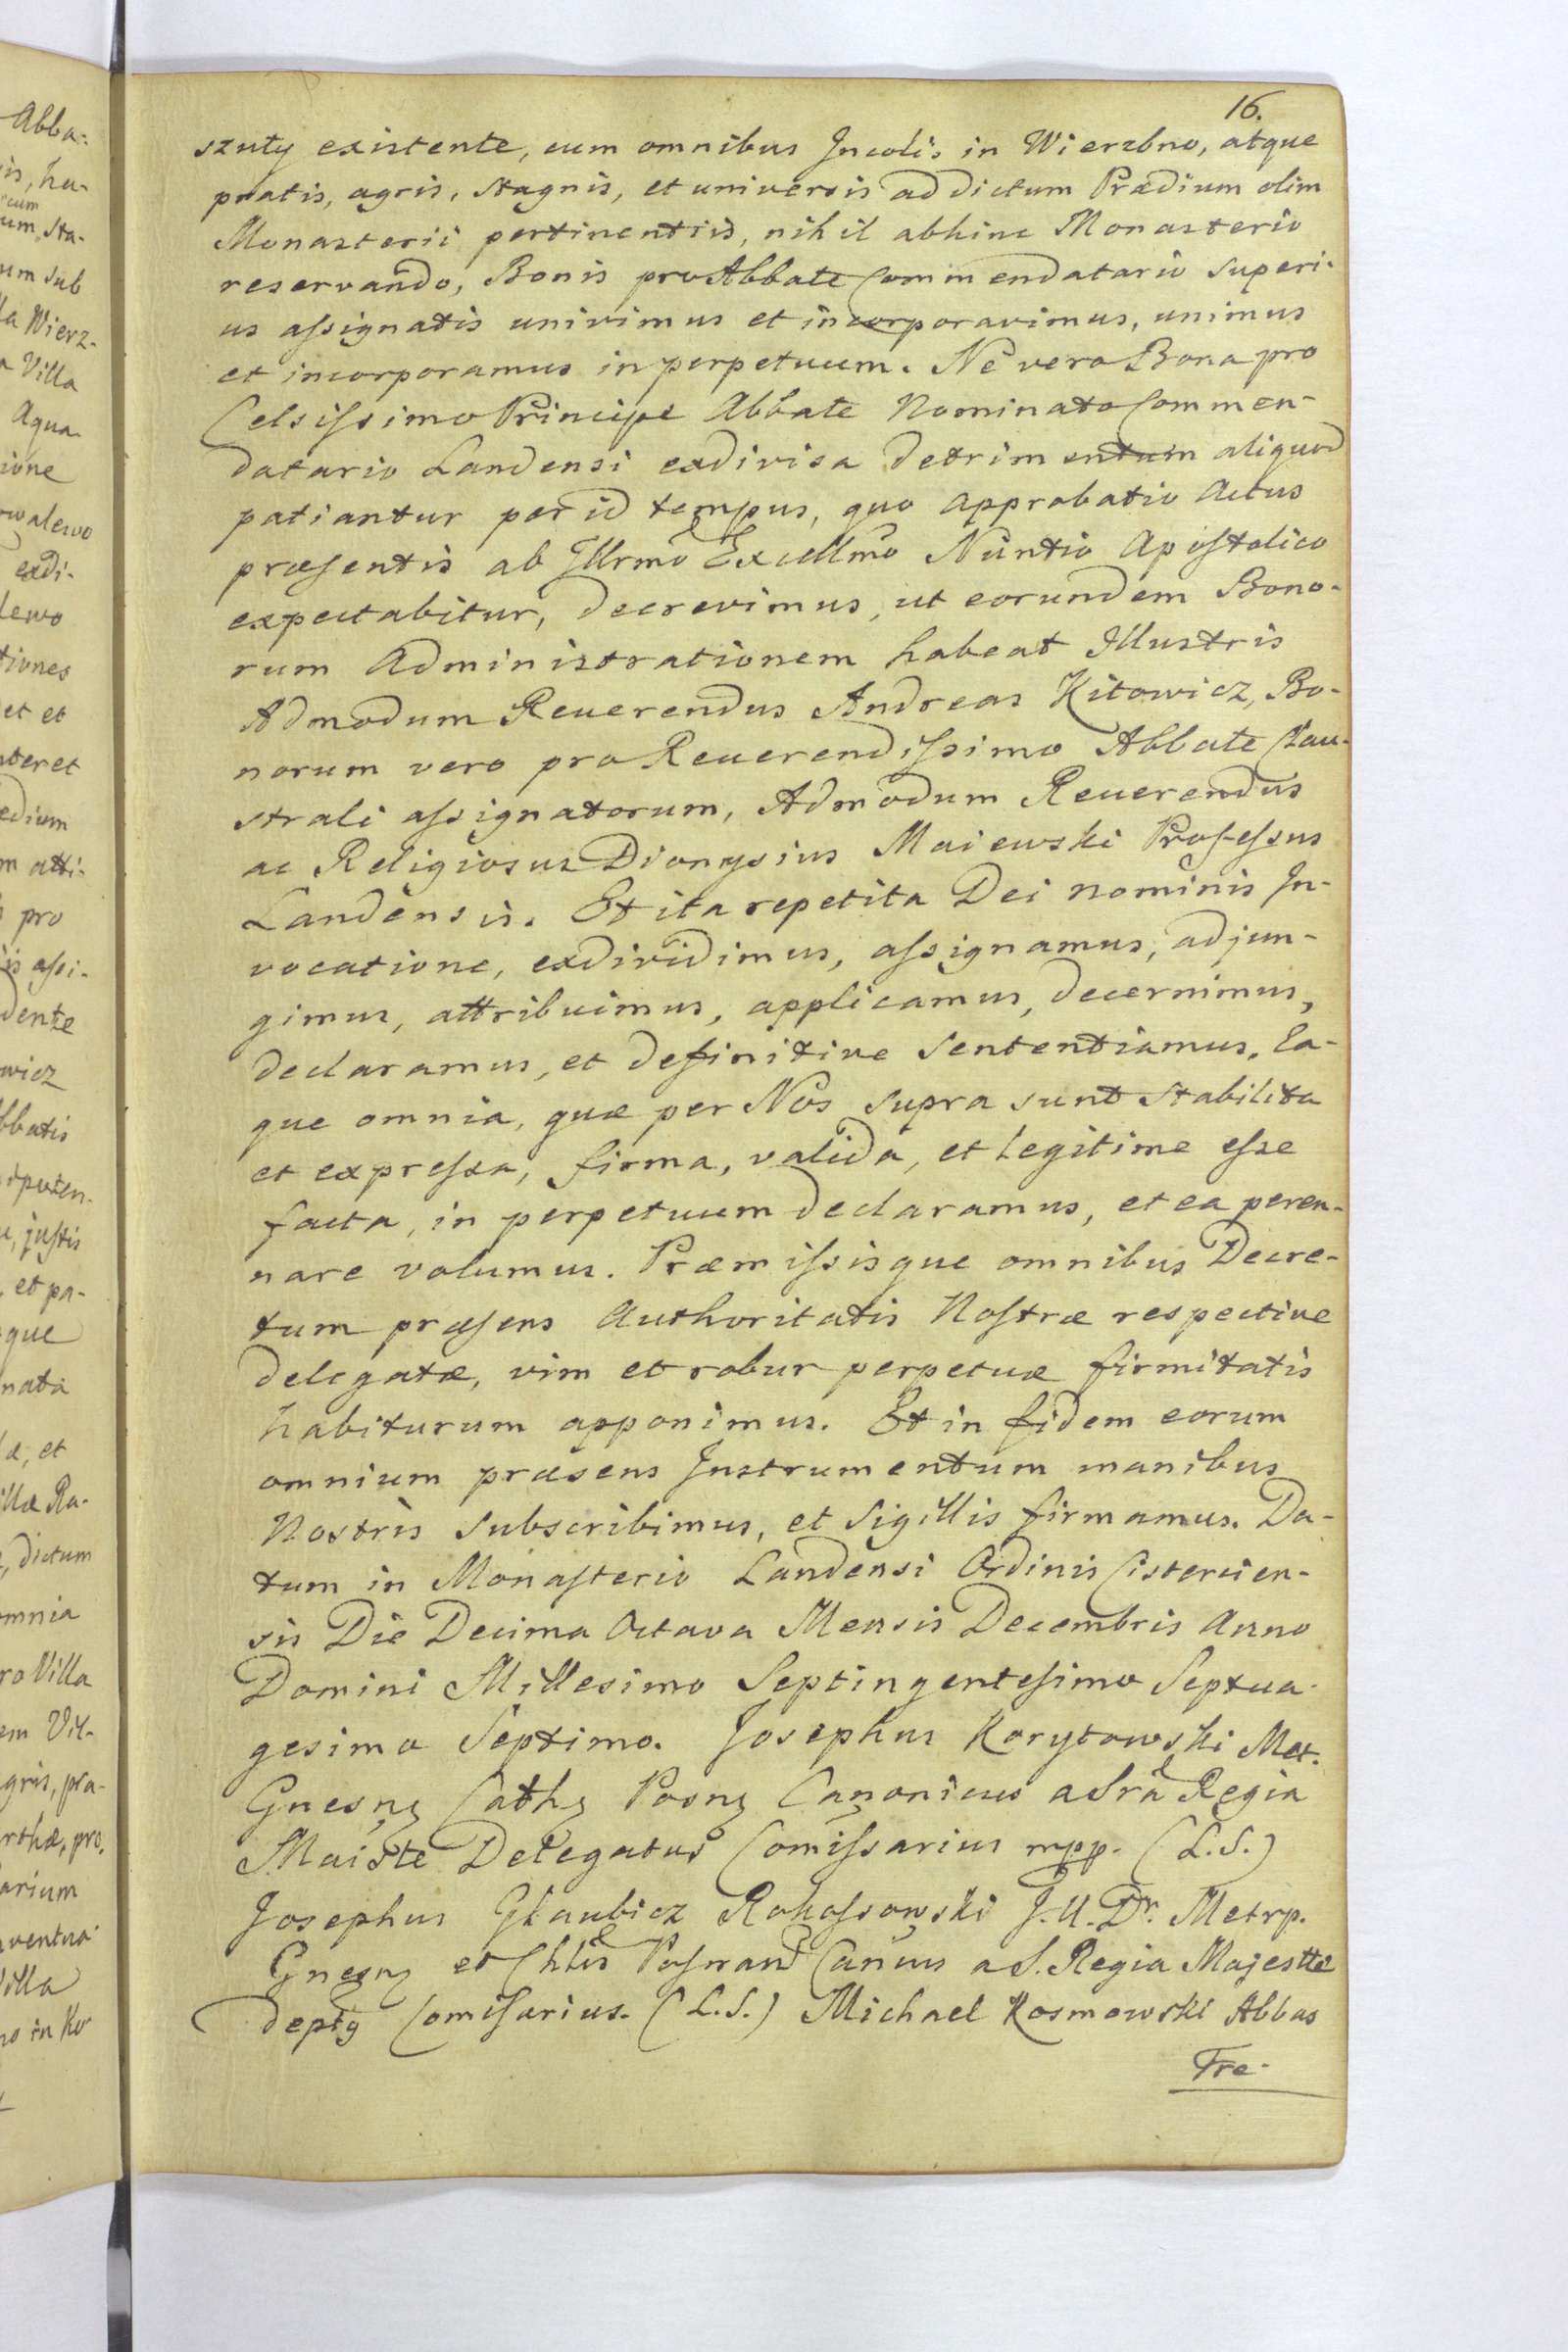 16.
szuty existente, cum omnibus Incolis in Wierzbno, atque
pratis, agris, stagnis, et universis ad dictum Prædium olim
Monasterii pertinentiis, nihil abhinc Monasterio
reservando, Bonis pro Abbate Commendatario superi-
us assignatis univimus et incorporavimus, unimus
et incorporamus in perpetuum. Ne vero Bona pro
Celsissimo Principe Abbate Nominato Commen-
datario Landensi exdivisa detrimentum aliquod
patiantur per id tempus, quo approbatio Actus
præsentis ab Illrmo Excellmo Nuntio Apostolico
expectabitur, decrevimus, ut eorundem Bono-
rum Administrationem habeat Illustris
Admodum Reuerendus Andreas Kitowicz, Bo-
norum vero pro Reuerendissimo Abbate Clau-
strali assignatorum, Admodum Reuerendus
ac Religiosus Dionysius Maiewski Professus
Landensis. Et ita repetita Dei nominis In-
vocatione, exdividimus, assignamus, adjun-
gimus, attribuimus, applicamus, decernimus,
declaramus, et definitive sententiamus. Ea-
que omnia, quæ per Nos supra sunt stabilita
et expressa, firma, valida, et legitime esse
facta, in perpetuum declaramus, et ea peren-
nare volumus. Præmissisque omnibus Decre-
tum præsens Authoritatis Nostræ respective
delegatæ, vim et robur perpetuæ firmitatis
habiturum apponimus. Et in fidem eorum
omnium præsens Instrumentum manibus
Nostris subscribimus, et sigillis firmamus. Da-
tum in Monasterio Landensi Ordinis Cistercien-
sis Die Decima Octava Mensis Decembris Anno
Domini Millesimo Septingentesimo Septua-
gesimo Septimo. Josephus Korytowski Met.
Gnesnz Cathz Posnz Canonicus a Sra Regia
Maiste Delegatus Comissarius mpp. (L.S.)
Josephus Glaubicz Rokossowski J.U.Dr. Metrp.
Gnesnz et Chlis Posnan Canus a S. Regia Majestte
deptg Comisarius. (L.S.) Michael Kosmowski Abbas
Tre-